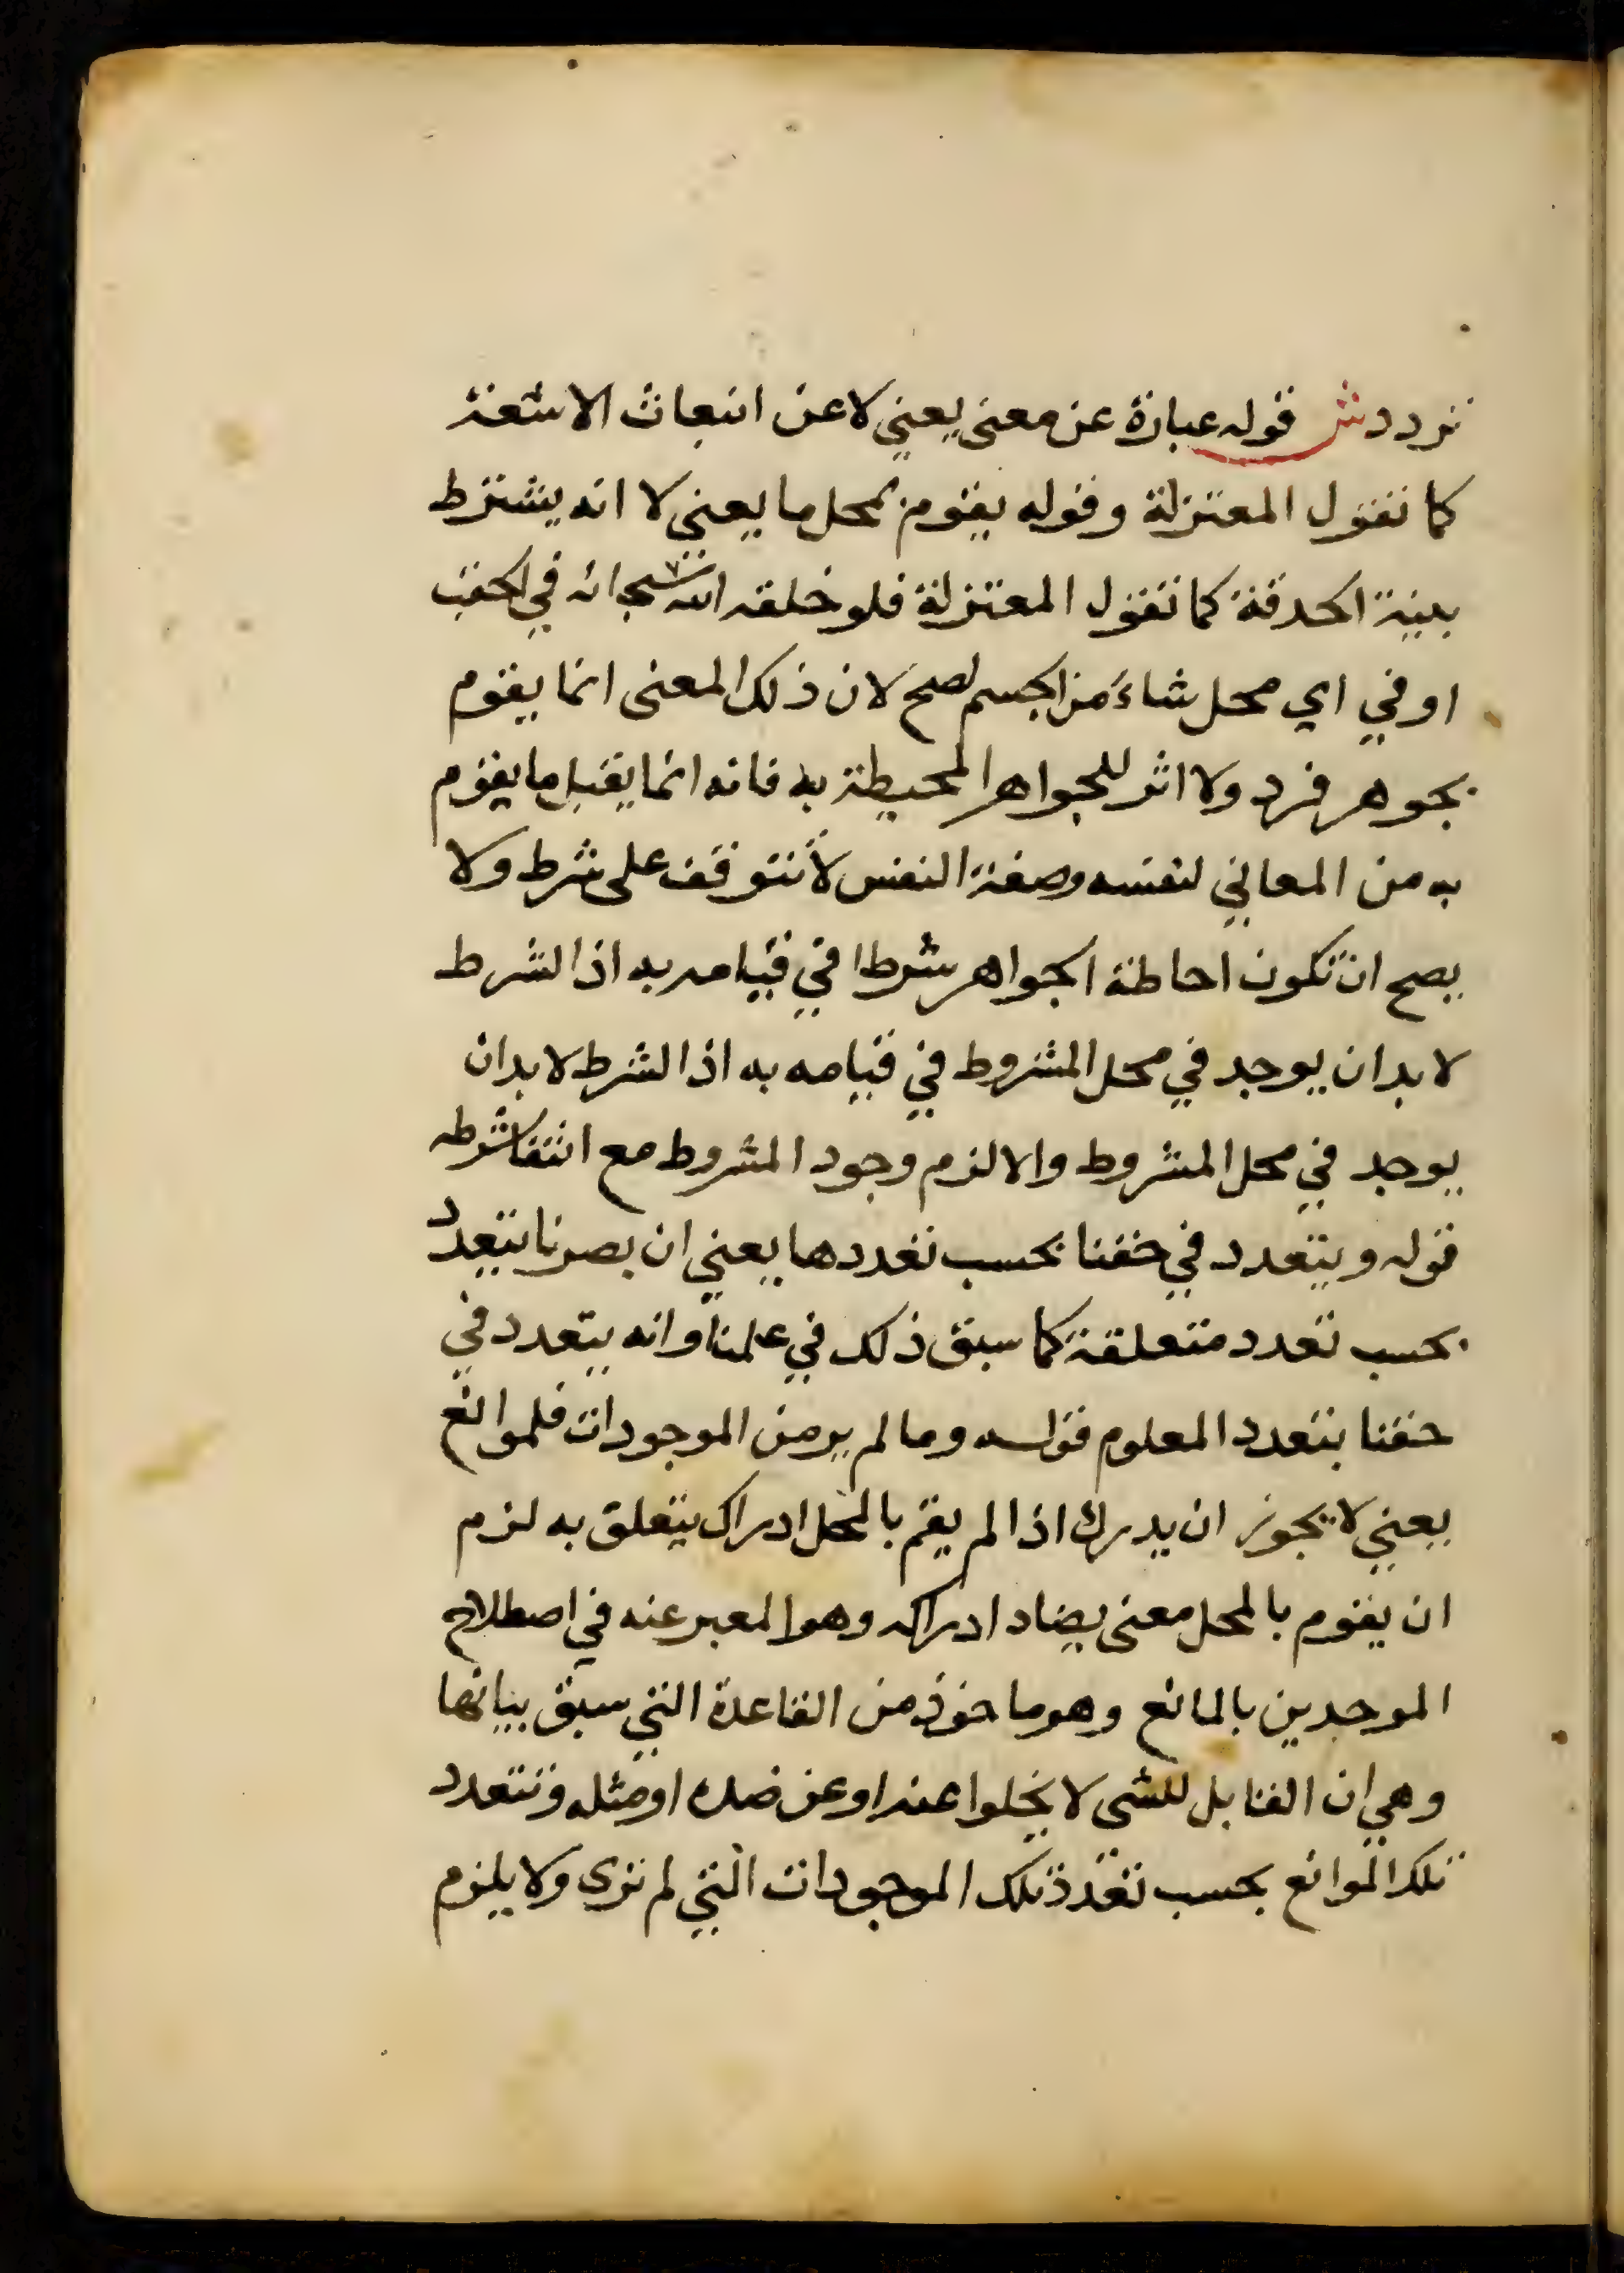 تردد ش قوله عبارة عن معنى يعني لا عن انبعاث الاشعة
كما تقول المعتزلة وقوله يقوم بمحل ما يعني لا انه يشترط
بنية الحدقة كما تقول المعتزلة فلو خلقه الله سبحانه في العقب
او في اي محل شاء من الجسم لصح لان ذلك المعنى انما يقوم
بجوهر فرد ولا اثر للجواهر المحيطة به فانه انما يقبل ما يقوم
به من المعاني لنفسه وصفة النفس لا تتوقف على شرط ولا
يصح ان تكون احاطة الجواهر شرطا في قيامه به اذ الشرط
لا بد ان يوجد في محل المشروط في قيامه به اذ الشرط لا بد ان
يوجد في محل المشروط والا لزم وجود المشروط مع انتفا شرطه
قوله ويتعدد في حقنا بحسب تعددها يعني ان بصرنا يتعدد
بحسب تعدد متعلقة كما سبق ذلك في علمنا وانه يتعدد في
حقنا بتعدد المعلوم قوله وما لم ير من الموجودات فلموانع
يعني لا يجوز ان يدرك اذا لم يقم بالمحل ادراك يتعلق به لزم
ان يقوم بالمحل معنى يضاد ادراكه وهو المعبر عنه في اصطلاح
الموحدين بالمانع وهو ماخوذ من القاعدة التي سبق بيانها
وهي ان القابل للشى لا يخلوا عنه او عن ضده او مثله وتتعدد
تلك الموانع بحسب تعدد تلك الموجودات التي لم ترى ولا يلزم